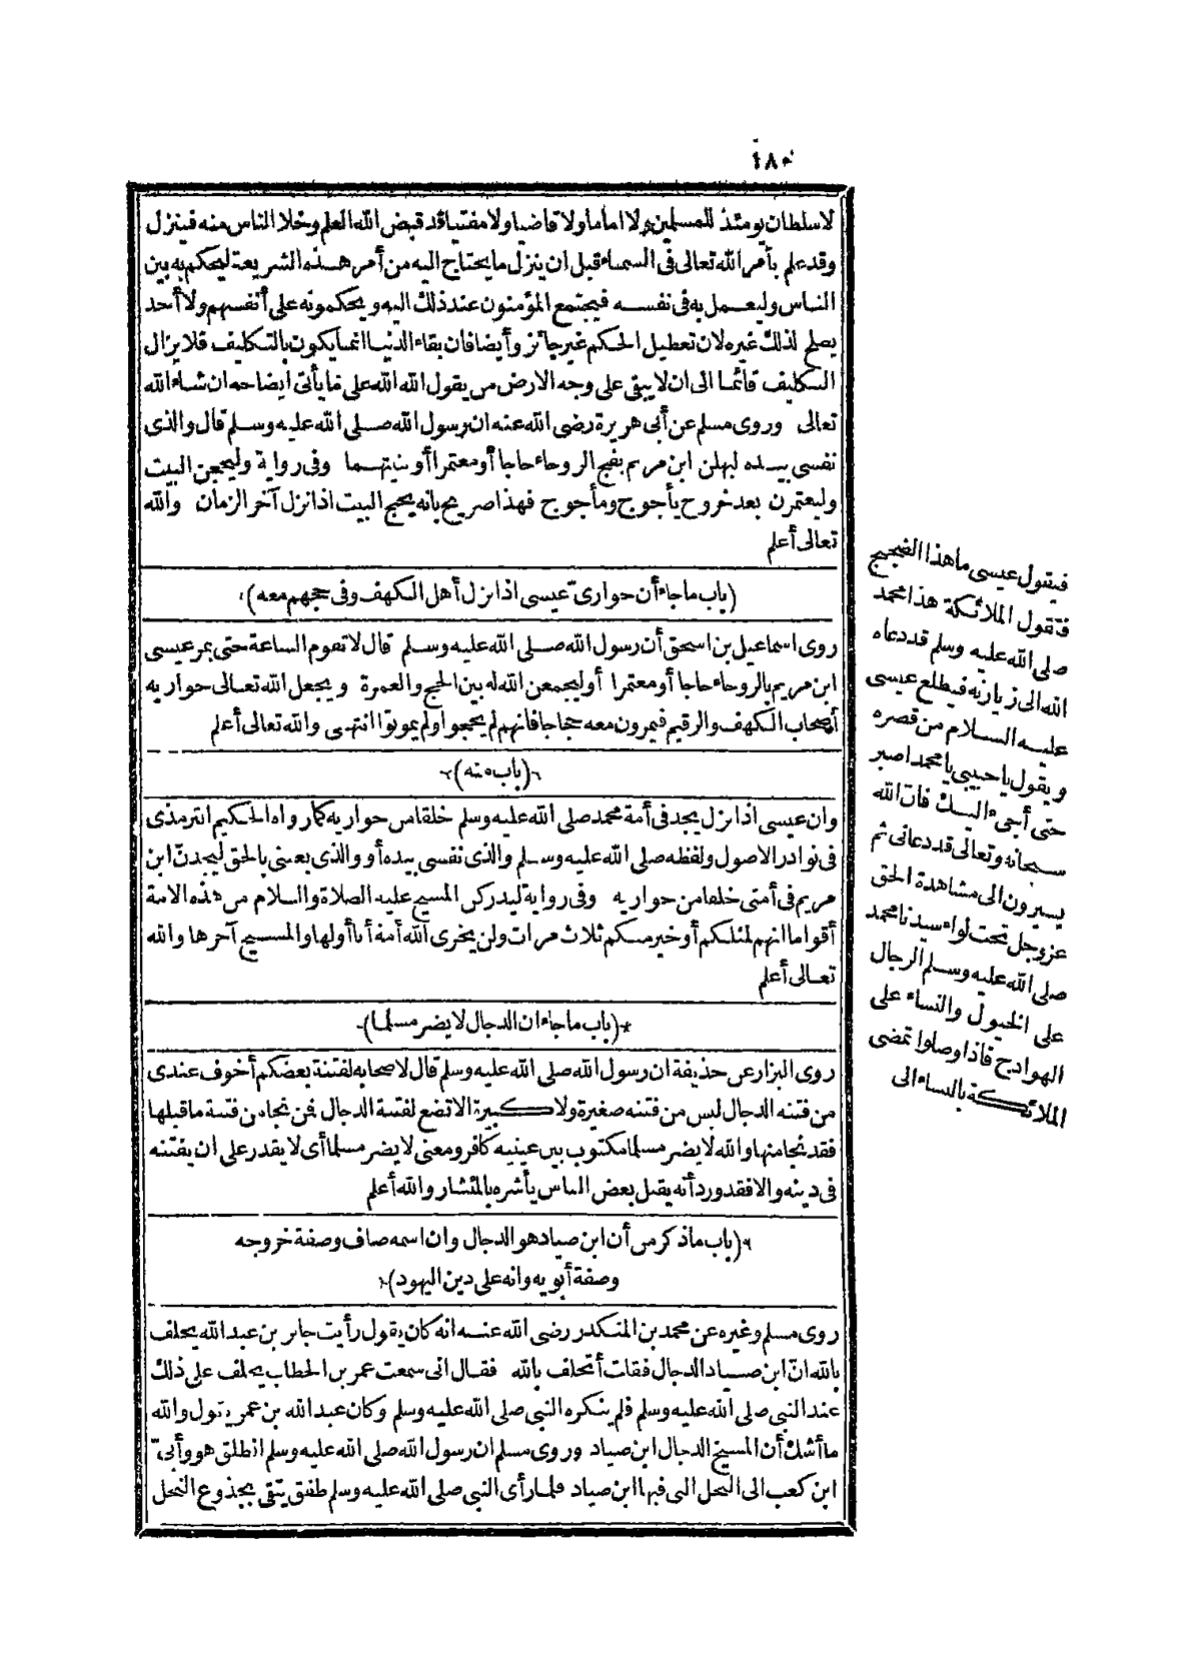 ١٨٠
لا سلطان يومئذ للمسلمين ولا اماما ولا قاضيا ولا مفتيا وقد قبض الله العلم وخلا الناس منه فينزل
وقد علم بأمر الله تعالى فى السماء قبل ان ينزل ما يحتاج اليه من أمر هذه الشريعة ليحكم به بين
الناس وليعمل به فى نفسه فيجتمع المؤمنون عند ذلك اليه ويحكمونه على أنفسهم ولا أحد
يصلح لذلك غيره لان تعطيل الحكم غير جائز وأيضا فان بقاء الدنيا انما يكون بالتكليف فلا يزال
التكليف قائما الى ان لا يبقى على وجه الارض من يقول الله الله على ما يأتى ايضاحه ان شاء الله
تعالى وروى مسلم عن أبى هريرة رضى الله عنه ان رسول الله صلى الله عليه وسلم قال والذى
نفسى بيده ليهلن ابن مريم بفج الروحاء حاجا أو معتمرا أو يثنيهما وفى رواية وليحجن البيت
وليعتمرن بعد خروج يأجوج ومأجوج فهذا صريح بانه يحج البيت اذا نزل آخر الزمان والله
تعالى أعلم
(باب ما جاء أن حوارى عيسى اذا نزل أهل الكهف وفى حجهم معه)
روى اسماعيل بن اسحق أن رسول الله صلى الله عليه وسلم قال لا تقوم الساعة حتى يمر عيسى
ابن مريم بالروحاء حاجا أو معتمرا أو ليجمعن الله له بين الحج والعمرة ويجعل الله تعالى حواريه
أصحاب الكهف والرقيم فيمرون معه حجاجا فانهم لم يحجوا ولم يموتوا انتهى والله تعالى أعلم
(باب منه)
وان عيسى اذا نزل يجد فى أمة محمد صلى الله عليه وسلم خلقا من حواريه كما رواه الحكيم الترمذى
فى نوادر الاصول ولفظه صلى الله عليه وسلم والذى نفسى بيده أو والذى بعثنى بالحق ليجدنّ ابن
مريم فى أمتى خلفا من حواريه وفى رواية ليدركن المسيح عليه الصلاة والسلام من هذه الامة
أقواما انهم لمثلكم أو خير منكم ثلاث مرات ولن يخزى الله أمة أنا أولها والمسيح آخرها والله
تعالى أعلم
(باب ما جاء ان الدجال لا يضر مسلما)
روى البزار عن حذيفة ان رسول الله صلى الله عليه وسلم قال لاصحابه لفتنة بعضكم أخوف عندى
من فتنة الدجال ليس من فتنة صغيرة ولا كبيرة الا تضع لفتنة الدجال فمن نجا من فتنة ما قبلها
فقد نجا منها والله لا يضر مسلما مكتوب بين عينيه كافر ومعنى لا يضر مسلما أى لا يقدر على ان يفتنه
فى دينه والا فقد ورد أنه يقتل بعض الناس يأشره بالمنشار والله أعلم
(باب ما ذكر من أن ابن صياد هو الدجال وان اسمه صاف وصفة خروجه
وصفة أبويه وانه على دين اليهود)
روى مسلم وغيره عن محمد بن المنكدر رضى الله عنه انه كان يقول رأيت جابر بن عبد الله يحلف
بالله انّ ابن صياد الدجال فقلت أتحلف بالله فقال انى سمعت عمر بن الخطاب يحلف على ذلك
عند النبى صلى الله عليه وسلم فلم ينكره النبى صلى الله عليه وسلم وكان عبد الله بن عمر يقول والله
ما أشك أن المسيخ الدجال ابن صياد وروى مسلم ان رسول الله صلى الله عليه وسلم انطلق هو وأبىّ
ابن كعب الى النخل التى فيها ابن صياد فلما رأى النبى صلى الله عليه وسلم طفق يتقى بجذوع النخل
فيقول عيسى ما هذا الضجيج
فتقول الملائكة هذا محمد
صلى الله عليه وسلم قد دعاه
الله الى زيارته فيطلع عيسى
عليه السلام من قصره
ويقول يا حبيبى يا محمد اصبر
حتى أجىء اليك فان الله
سبحانه وتعالى قد دعانى ثم
يسيرون الى مشاهدة الحق
عز وجل تحت لواء سيدنا محمد
صلى الله عليه وسلم الرجال
على الخيول والنساء على
الهوادج فاذا وصلوا تمضى
الملائكة بالنساء الى